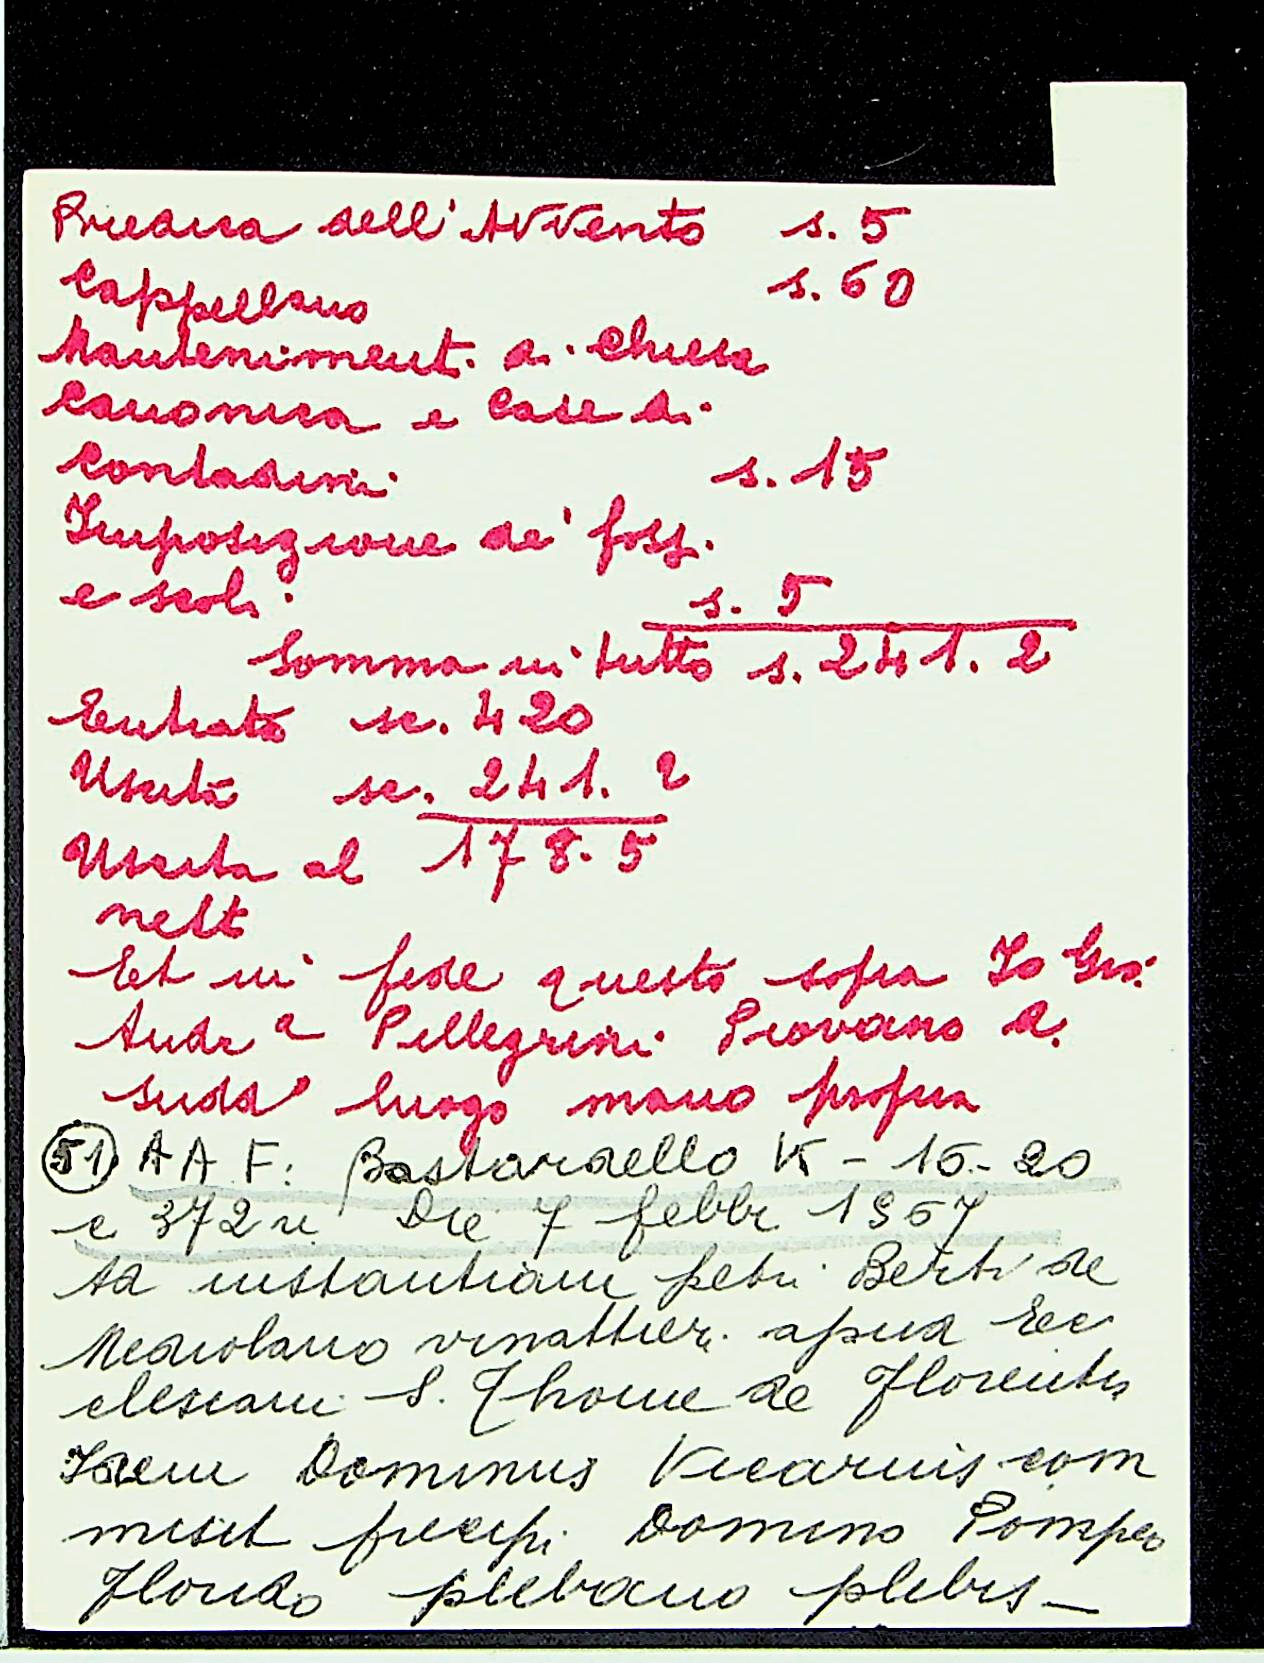 Predica dell'Avvento s. 5
Cappellano s. 60
Manteniment. di chiesa
Canonica e Case di
Contadini s. 15
Imposizione de' foss.
e scoli s. 5
Somma in tutto s. 241. 2
Entrata sc. 420
Uscita sc. 241. 2
Uscita al 178. 5
nett
Et in fede questo sopra Io Gio:
Andr a Pellegrini Piovano di
sudd° luogo mano propria
51) AAF: Bastardello K - 16 - 20
c 372 Die 7 febbr 1567
Ad instantiam petri Berti de
Mediolano vinattieri apud Ec
clesiam S. Thome de Florentia
Idem Dominus Vicarius com
misit precipi Domino Pompeo
Florido plebano plebis —